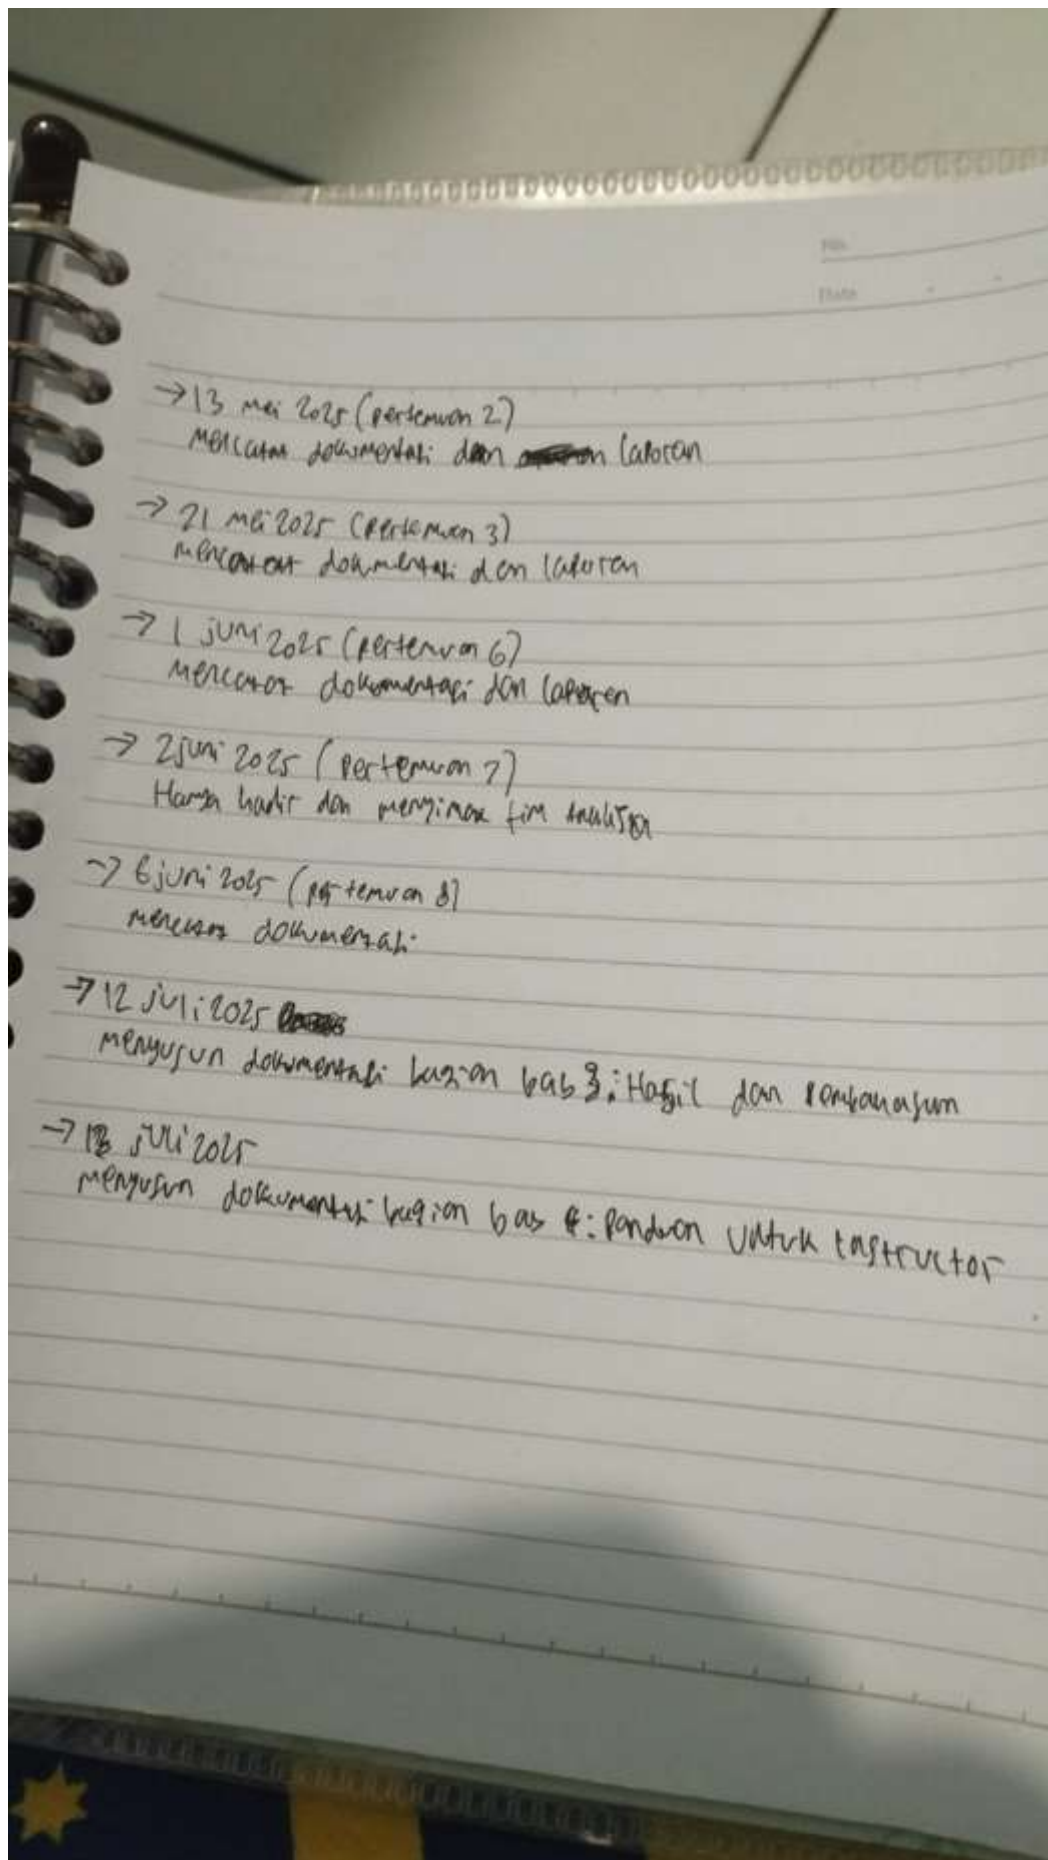 No.
Date
→ 13 mei 2025 (pertemuan 2)
Mencatat dokumentasi dan laporan
→ 21 mei 2025 (pertemuan 3)
mencatat dokumentasi dan laporan
→ 1 juni 2025 (pertemuan 6)
Mencatat dokumentasi dan laporan
→ 2 juni 2025 (pertemuan 7)
Hanya hadir dan menyimak tim analisa
→ 6 juni 2025 (pertemuan 8)
mencatat dokumentasi
→ 12 juli 2025
menyusun dokumentasi bagian bab 3: Hasil dan Pembahasan
→ juli 2025
menyusun dokumentasi bagian bab 4: Panduan untuk instructor